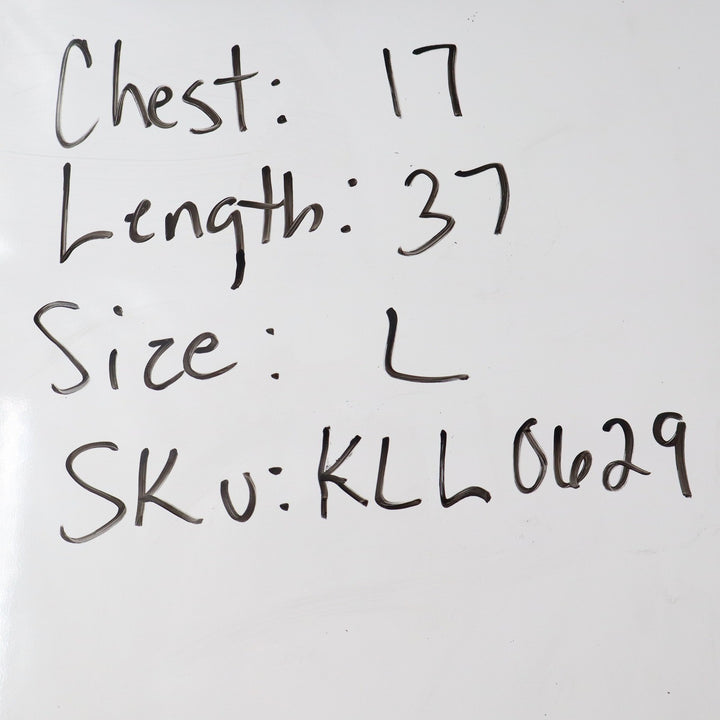 Chest: 17
Length: 37
Size: L
SKU: KLL0629